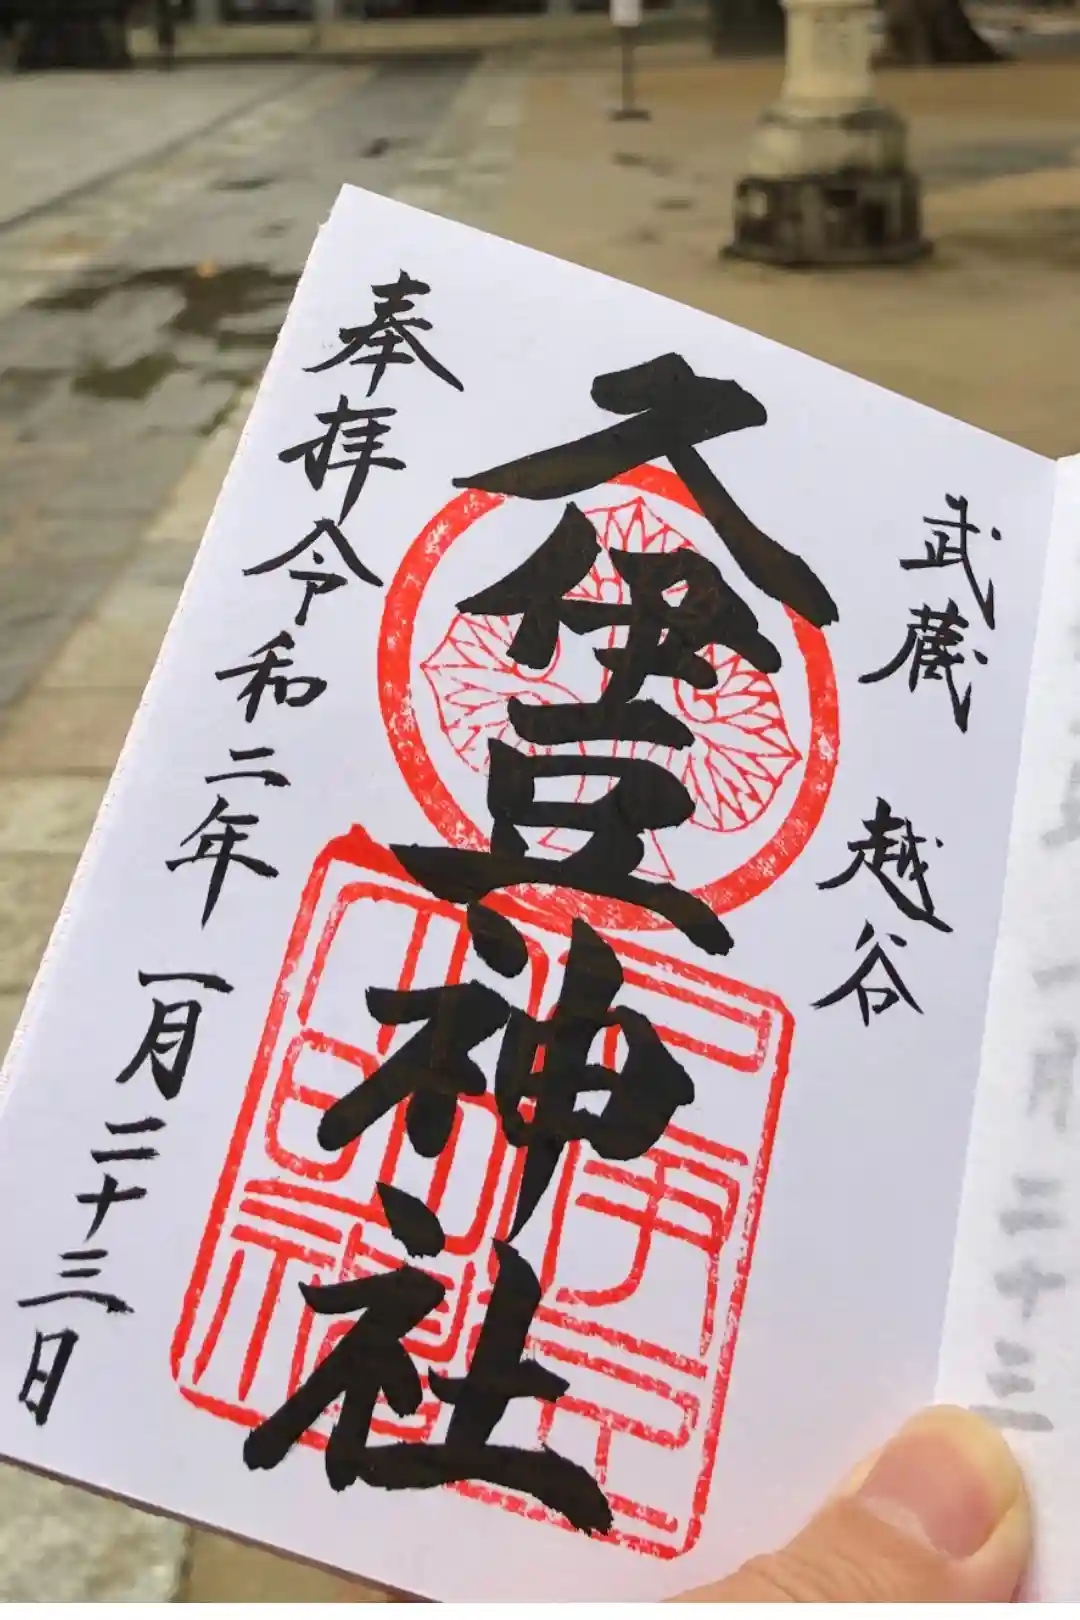 武蔵 越谷
久伊豆神社
奉拝令和二年一月二十三日